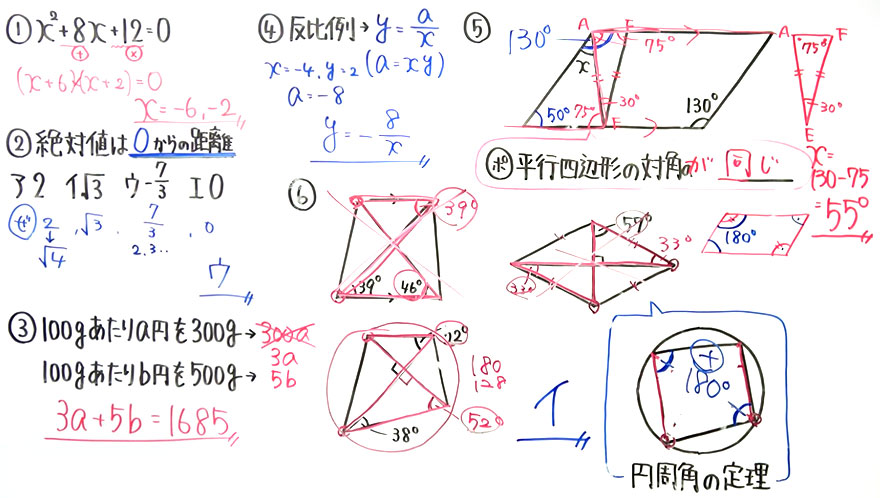 ① x²+8x+12=0
(x+6)(x+2)=0
x=-6,-2
② 絶対値は0からの距離
ア2 イ√3 ウ-7/3 エ0
2, √3, 7/3, 0
√4
2.3‥
ウ
③ 100gあたりa円を300g→300a
3a
100gあたりb円を500g→5b
3a+5b=1685
④ 反比例→y=a/x
x=-4,y=2 (a=xy)
a=-8
y=-8/x
⑤
130°
A F
75°
x
50° 75° 30°
E
130°
A F
75°
30°
E
ポ 平行四辺形の対角が同じ
x=
130-75
=55°
180°
⑥
39°
39° 46°
57°
33°
33°
72°
180
128
38°
52°
イ
180°
円周角の定理